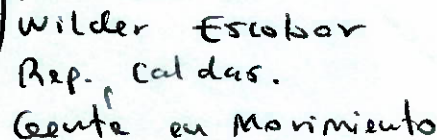 Wilder Escobar
Rep. Caldas.
Gente en Movimiento